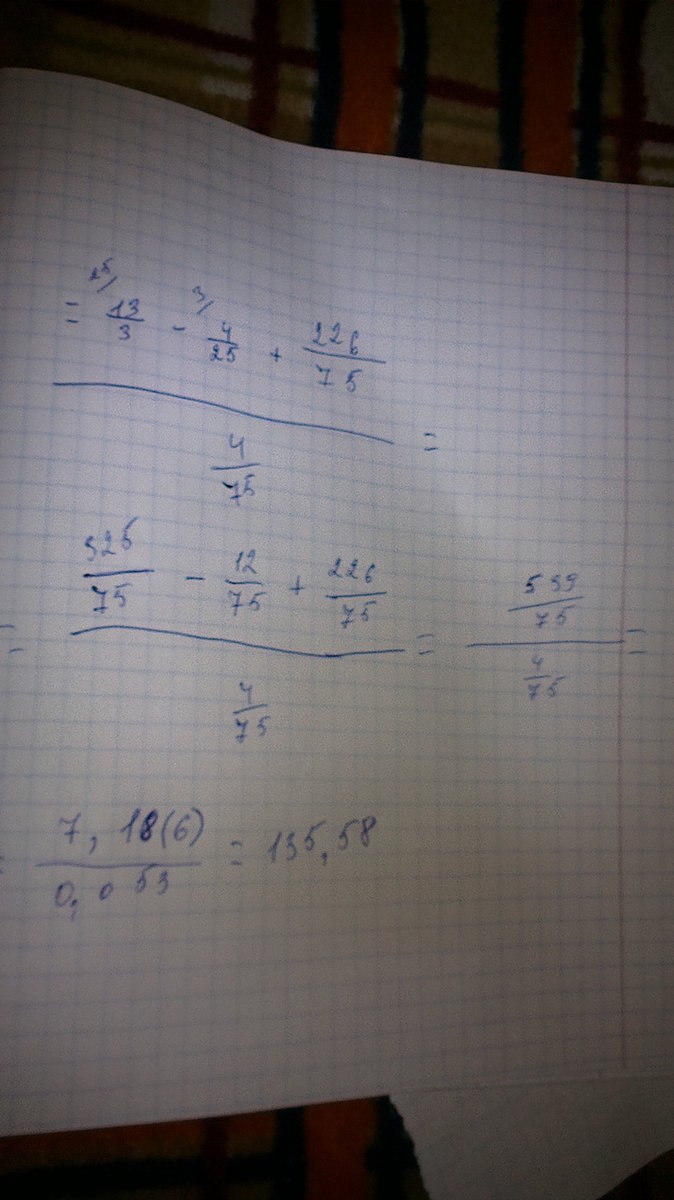 25/ 3/
= 13/3 - 4/25 + 226/75
4/75 =
= 325/75 - 12/75 + 226/75
4/75 = 539/75
4/75 =
= 7,18(6)
0,053 = 135,58